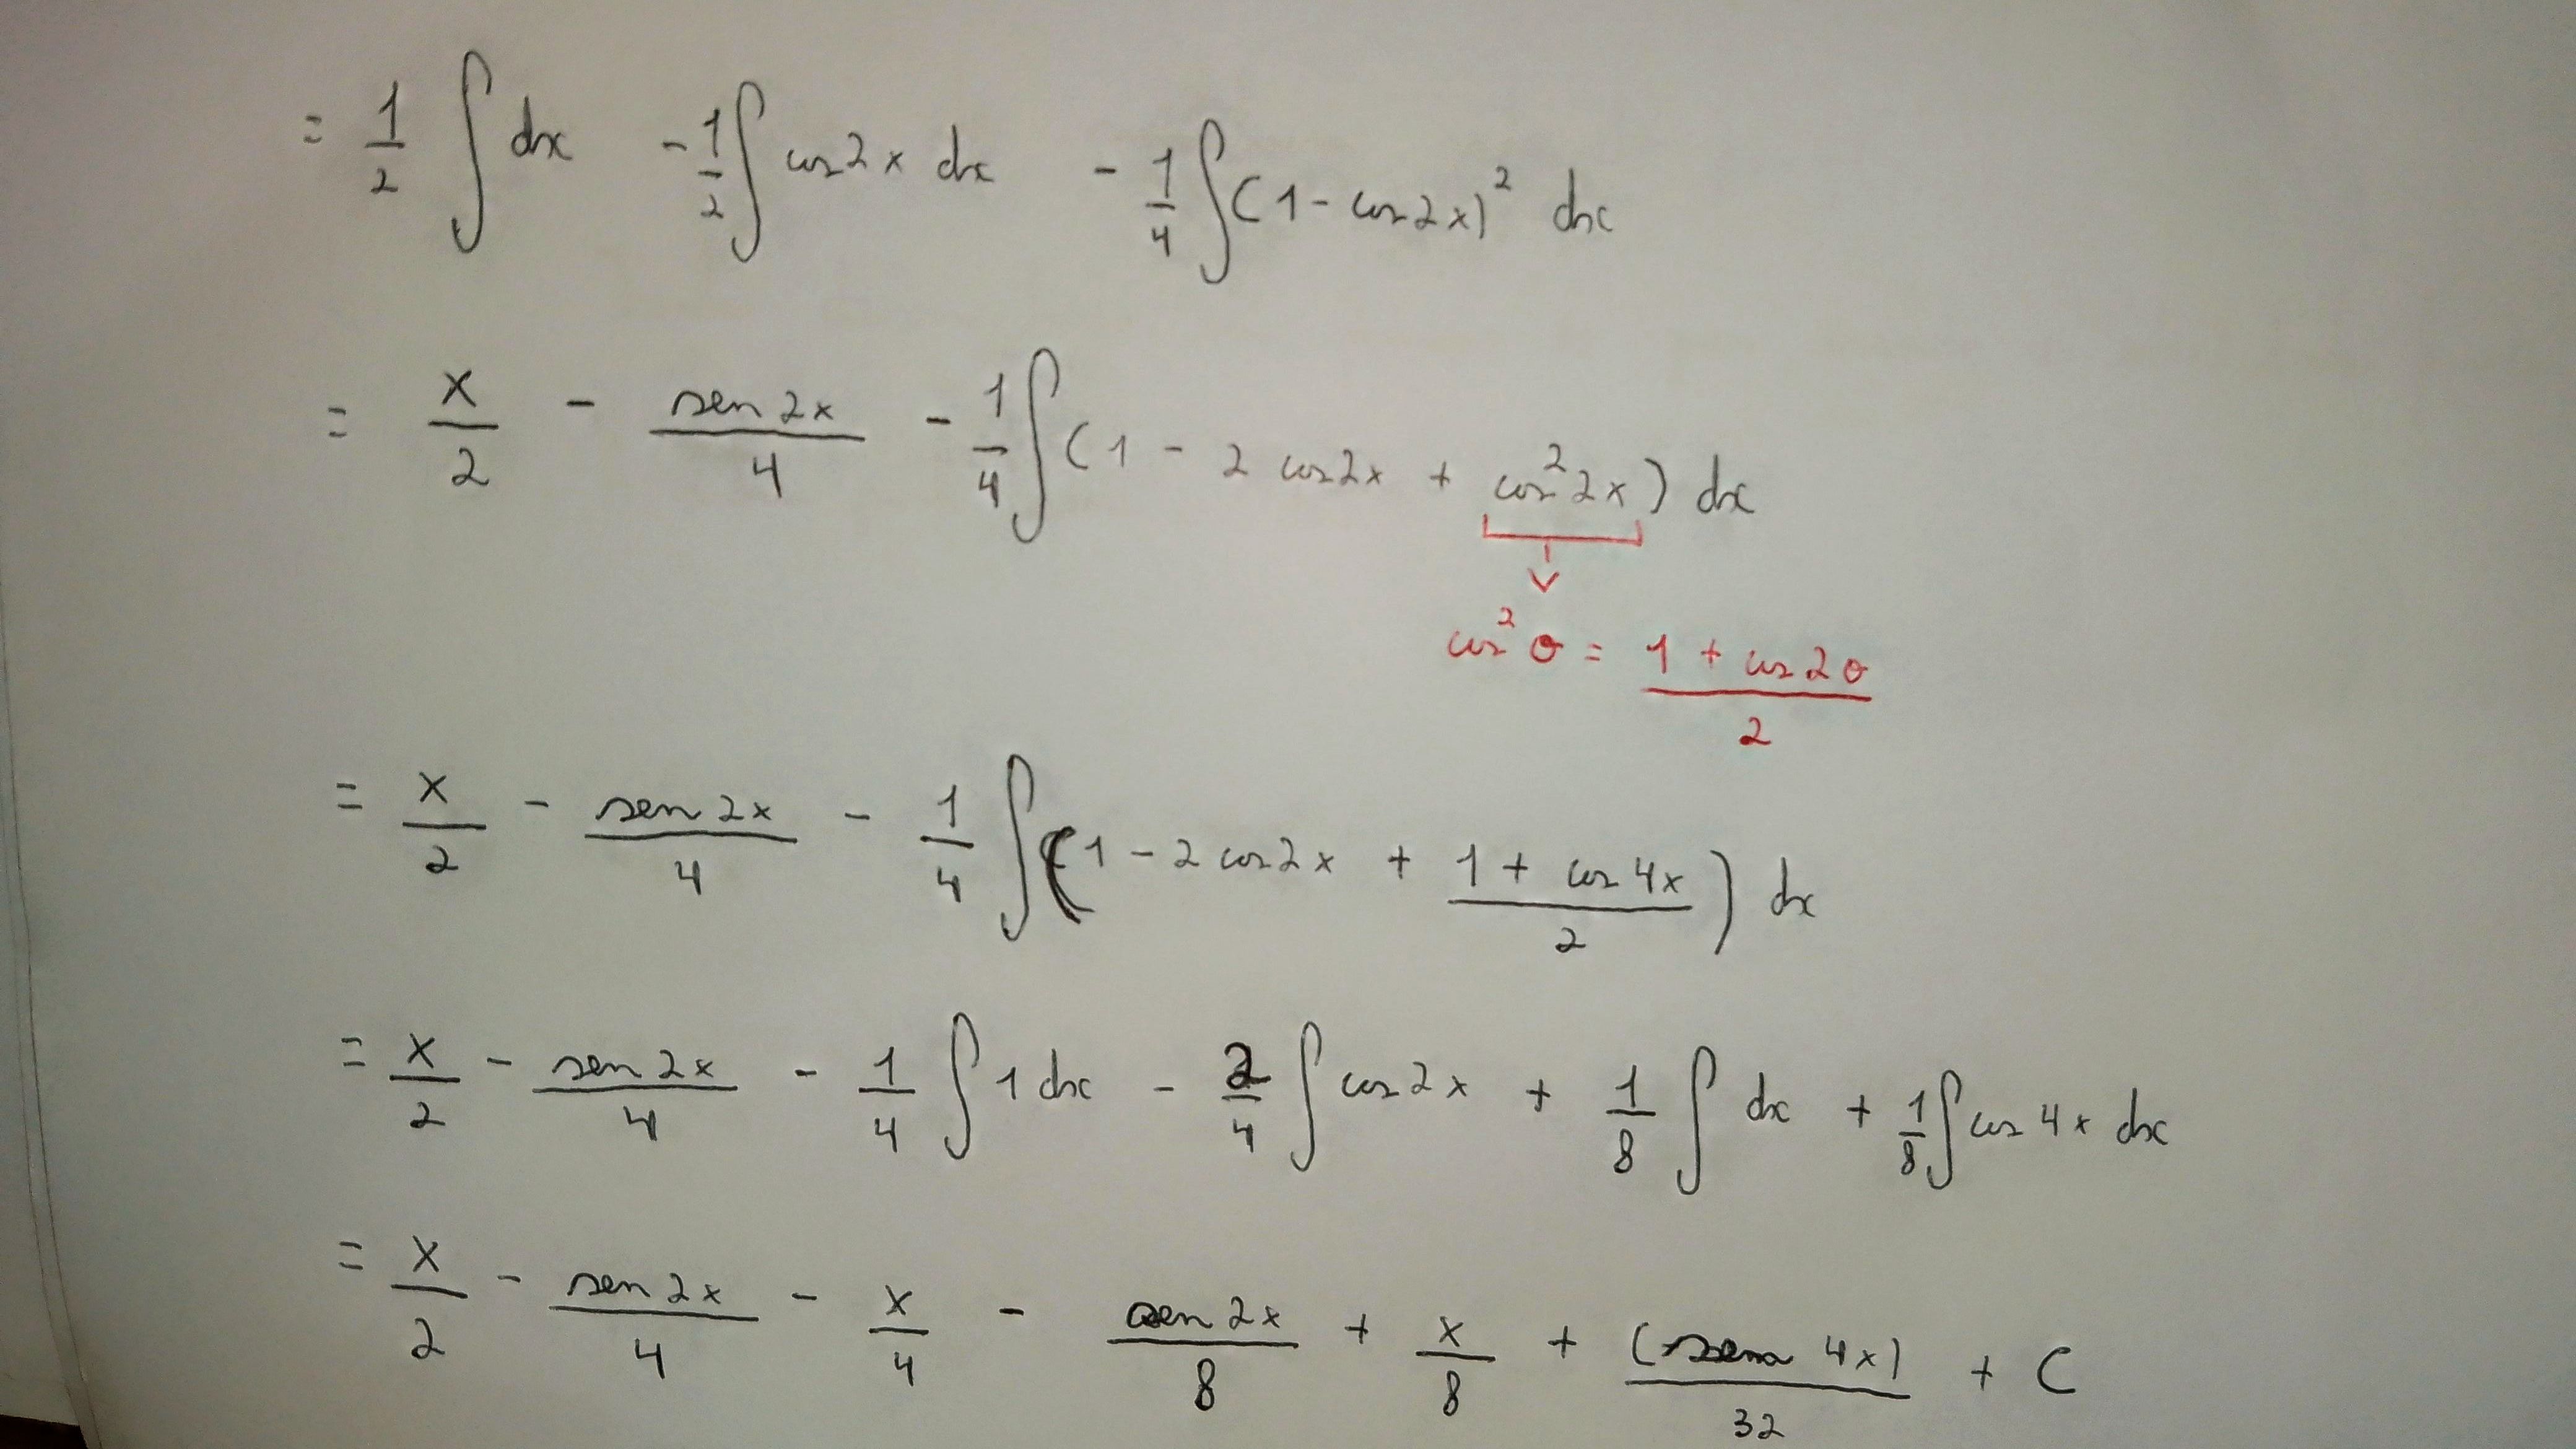 = 1/2 ∫ dx - 1/2 ∫ cos2x dx - 1/4 ∫ (1 - cos2x)² dx
= x/2 - sen 2x/4 - 1/4 ∫ (1 - 2 cos2x + cos² 2x) dx
cos² θ = (1 + cos 2θ)/2
= x/2 - sen 2x/4 - 1/4 ∫ (1 - 2 cos2x + (1 + cos 4x)/2) dx
= x/2 - sen 2x/4 - 1/4 ∫ 1 dx - 2/4 ∫ cos 2x + 1/8 ∫ dx + 1/8 ∫ cos 4x dx
= x/2 - sen 2x/4 - x/4 - sen 2x/8 + x/8 + (sen 4x)/32 + C